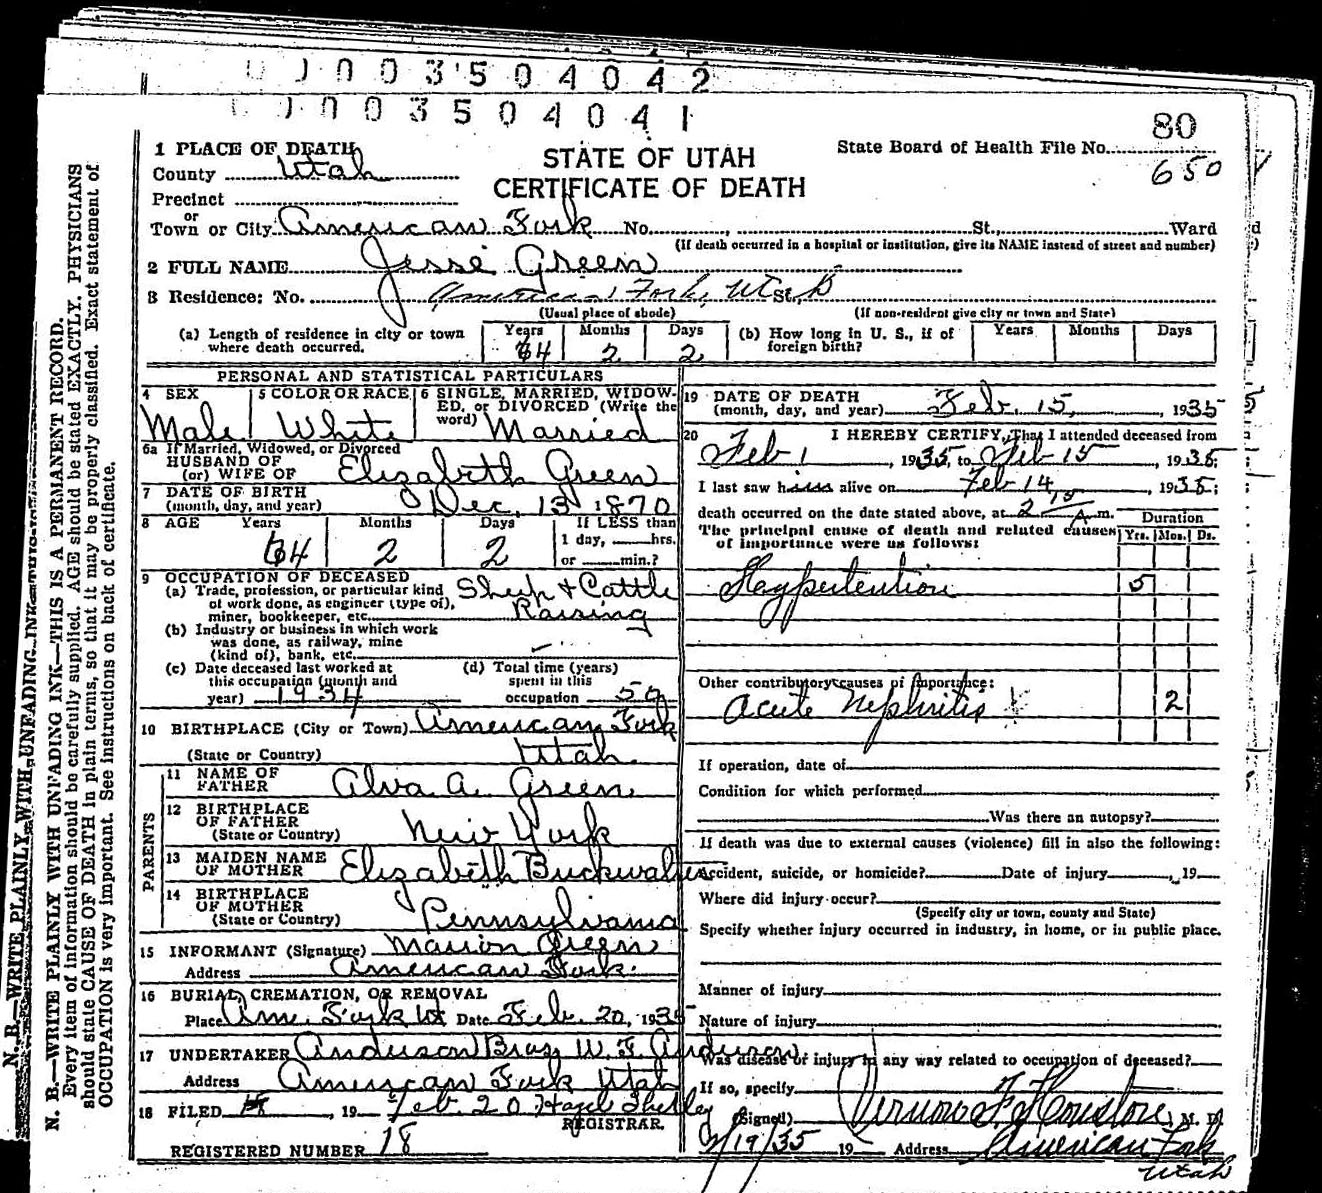 0003504042
0003504041
80
1 PLACE OF DEATH
STATE OF UTAH
State Board of Health File No.
650
County Utah
CERTIFICATE OF DEATH
Precinct
or
Town or City American Fork No. , St., Ward
(If death occurred in a hospital or institution, give its NAME instead of street and number)
2 FULL NAME Jesse Green
3 Residence: No. American Fork, Utah St.
(Usual place of abode) (If non-resident give city or town and State)
(a) Length of residence in city or town where death occurred. Years 64 Months 2 Days 2
(b) How long in U. S., if of foreign birth? Years Months Days
PERSONAL AND STATISTICAL PARTICULARS
4 SEX Male
5 COLOR OR RACE White
6 SINGLE, MARRIED, WIDOWED, or DIVORCED (Write the word) Married
6a If Married, Widowed, or Divorced
HUSBAND OF
(or) WIFE OF Elizabeth Green
7 DATE OF BIRTH
(month, day, and year) Dec. 13 1870
8 AGE Years 64 Months 2 Days 2 If LESS than
1 day, hrs.
or min.?
9 OCCUPATION OF DECEASED
(a) Trade, profession, or particular kind of work done, as engineer (type of), miner, bookkeeper, etc. Sheep & Cattle Raising
(b) Industry or business in which work was done, as railway, mine (kind of), bank, etc.
(c) Date deceased last worked at this occupation (month and year) 1934
(d) Total time (years) spent in this occupation 50
10 BIRTHPLACE (City or Town) American Fork
(State or Country) Utah
PARENTS
11 NAME OF FATHER Alva A. Green
12 BIRTHPLACE OF FATHER
(State or Country) New York
13 MAIDEN NAME OF MOTHER Elizabeth Buckwalter
14 BIRTHPLACE OF MOTHER
(State or Country) Pennsylvania
15 INFORMANT (Signature) Marion Green
Address American Fork.
16 BURIAL, CREMATION, OR REMOVAL
Place Am. Fork Ut Date Feb. 20, 1935
17 UNDERTAKER Anderson Bros W. F. Anderson
Address American Fork Utah
18 FILED , 19 Feb. 20 Hazel Shelley
REGISTRAR.
REGISTERED NUMBER 18
19 DATE OF DEATH
(month, day, and year) Feb. 15, , 1935
20 I HEREBY CERTIFY, That I attended deceased from
Feb 1 , 1935, to Feb 15 , 1935;
I last saw him alive on Feb 14 , 1935;
death occurred on the date stated above, at 2 15 A. m.
The principal cause of death and related causes of importance were as follows:
Duration
Yrs. Mos. Ds.
Hypertention 5
Other contributory causes of importance:
Acute Nephritis 2
If operation, date of
Condition for which performed
Was there an autopsy?
If death was due to external causes (violence) fill in also the following:
Accident, suicide, or homicide? Date of injury , 19
Where did injury occur?
(Specify city or town, county and State)
Specify whether injury occurred in industry, in home, or in public place.
Manner of injury
Nature of injury
Was disease or injury in any way related to occupation of deceased?
If so, specify
(Signed) Vernon F. Houston, M. D.
2/19/35 19 Address American Fork
Utah
N. B.—WRITE PLAINLY WITH UNFADING INK—THIS IS A PERMANENT RECORD.
Every item of information should be carefully supplied. AGE should be stated EXACTLY. PHYSICIANS
should state CAUSE OF DEATH in plain terms, so that it may be properly classified. Exact statement of
OCCUPATION is very important. See instructions on back of certificate.
N. B.—WRITE PLAINLY WITH UNFADING INK